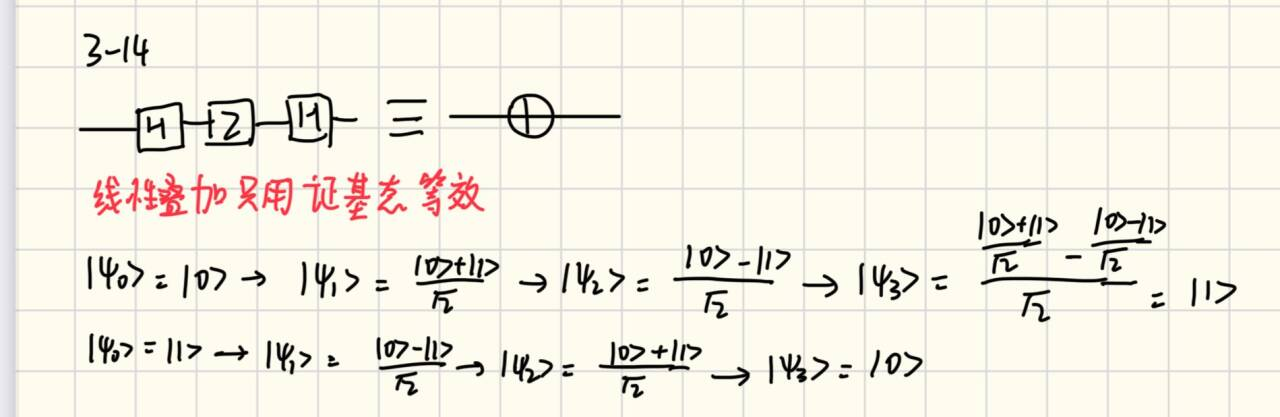 3-14
H Z H ≡ ⊕
线性叠加只用证基态等效
|ψ₀> = |0> → |ψ₁> = (|0>+|1>)/√2 → |ψ₂> = (|0>-|1>)/√2 → |ψ₃> = ((|0>+|1>)/√2 - (|0>-|1>)/√2)/√2 = |1>
|ψ₀> = |1> → |ψ₁> = (|0>-|1>)/√2 → |ψ₂> = (|0>+|1>)/√2 → |ψ₃> = |0>